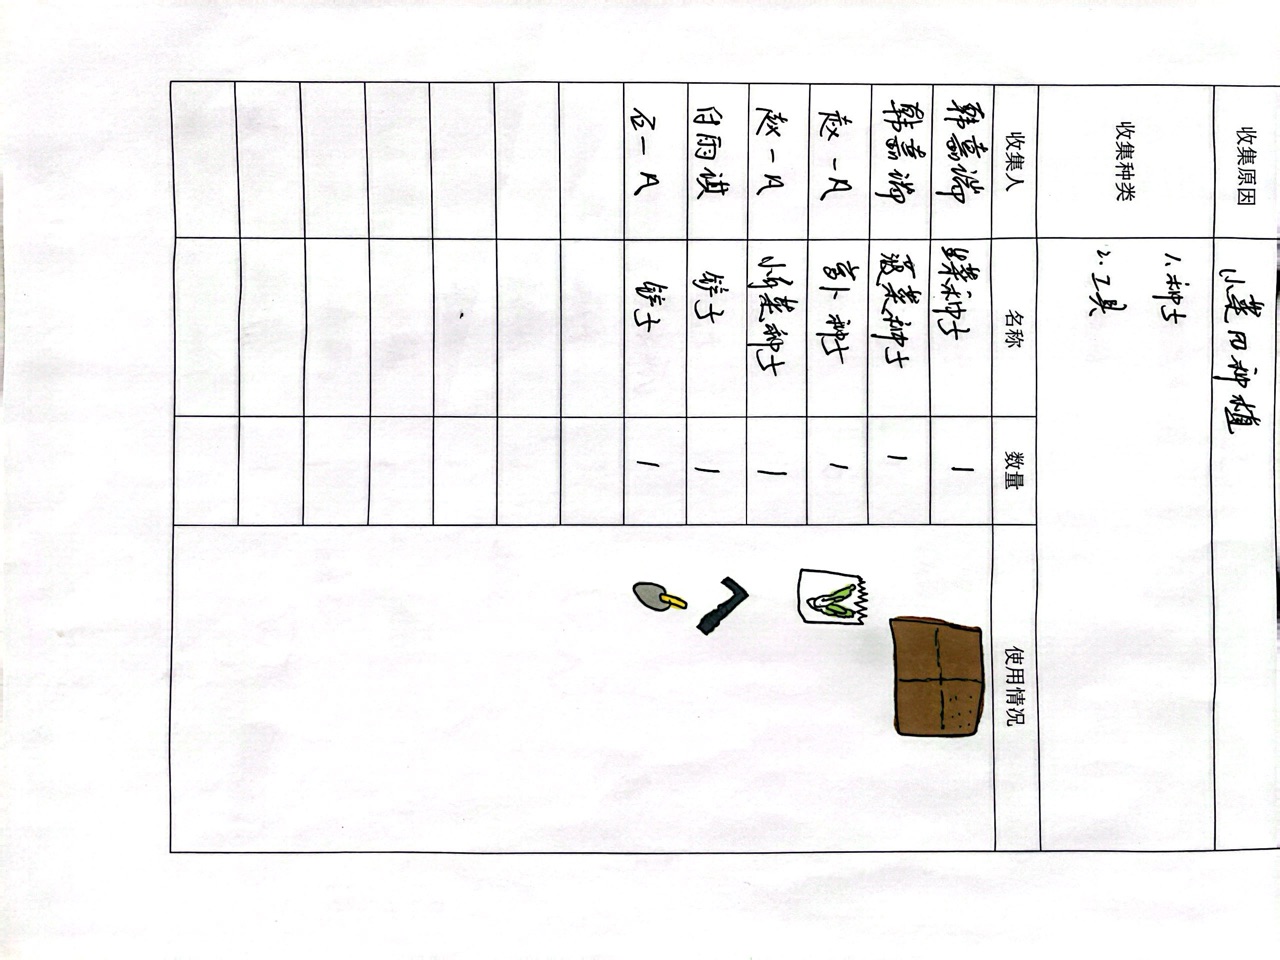 收集原因 小菜园种植
收集种类 1.种子
2.工具
收集人 名称 数量 使用情况
韩嘉端 菜种子 1
韩嘉端 菠菜种子 1
赵一A 萝卜种子 1
赵一A 菜种子 1
白雨淇 铲子 1
石一A 铲子 1